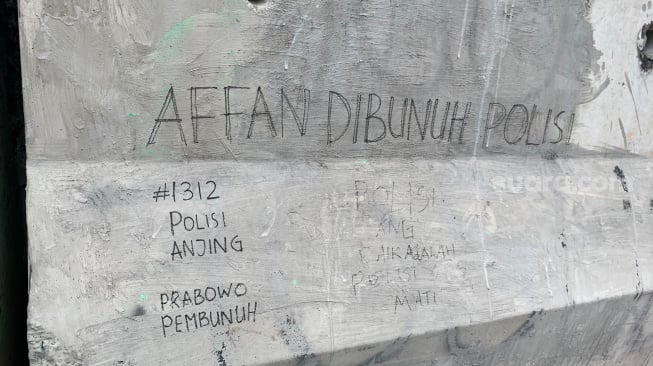 AFFAN DIBUNUH POLISI
#1312
POLISI
ANJING
PRABOWO
PEMBUNUH
POLISI
YANG
BAIK ADALAH
POLISI
MATI
suara.com